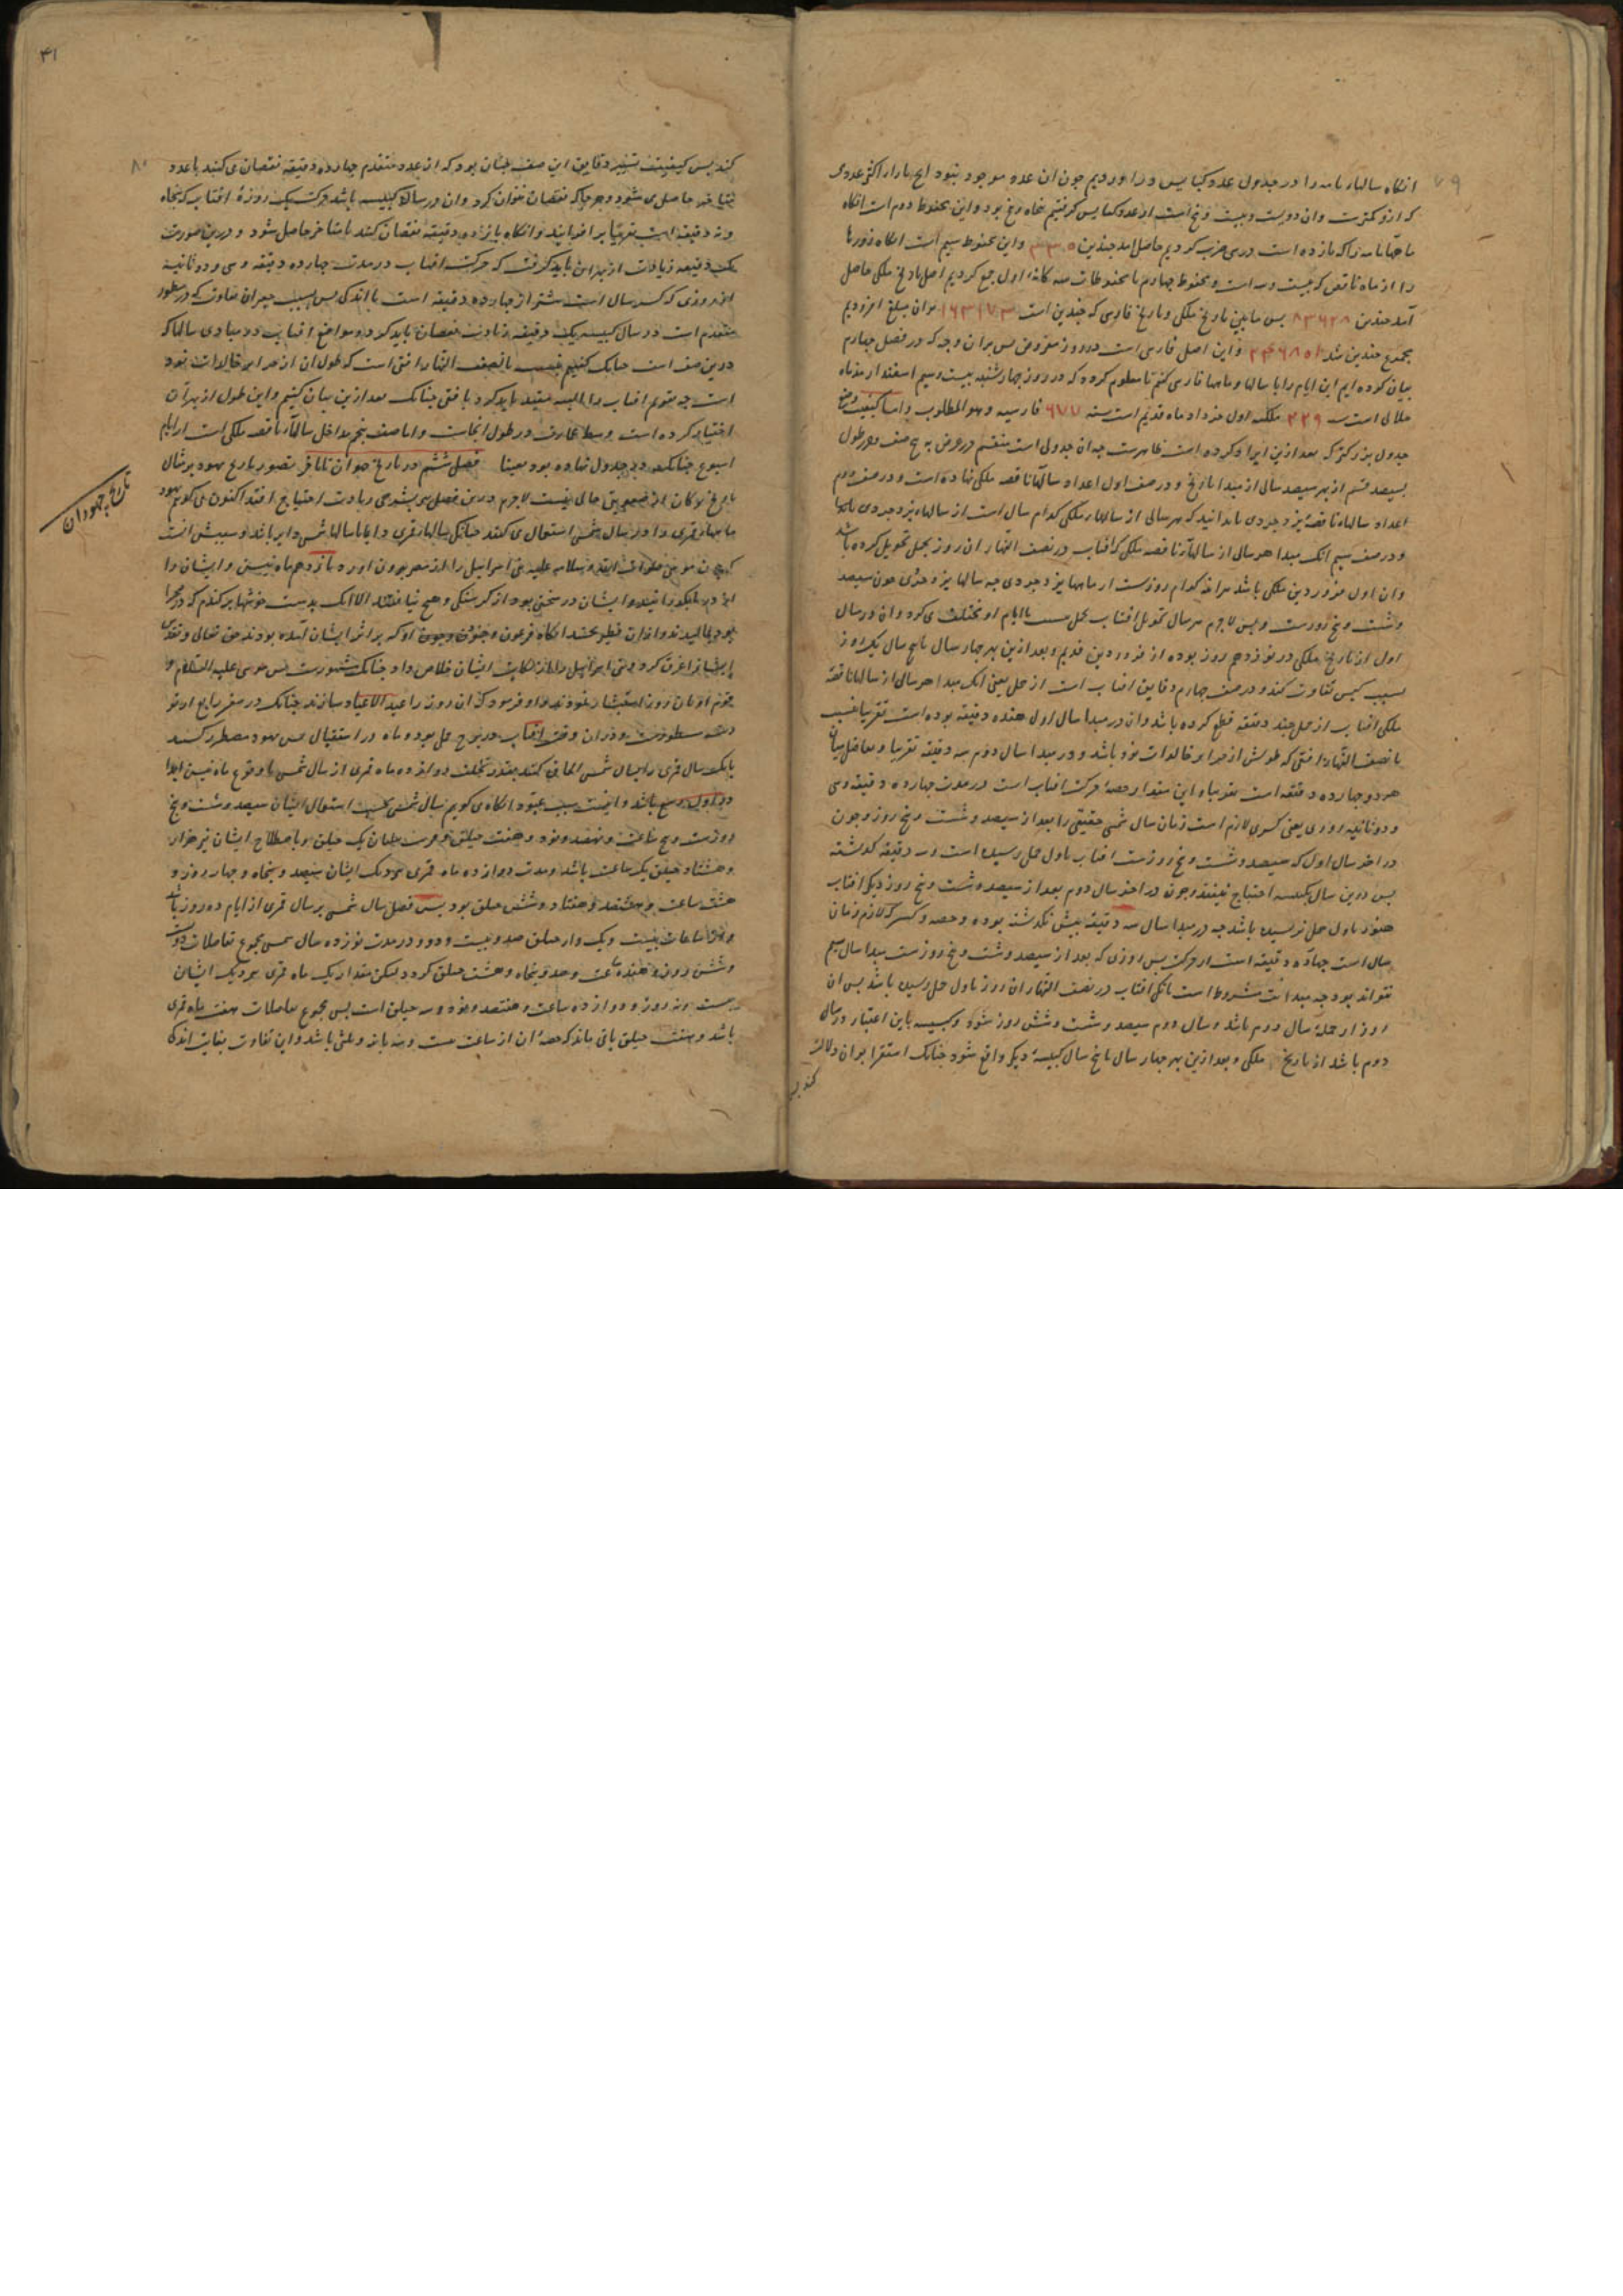 ۷۹
انگاه سالهار تامه را در جدول عدد کبایس در اوردیم چون ان عدد موجود نبود
که ازو کمترست وان دویست و بیست و پنج است از عدد کبایس کرفتیم پنجاه و پنج بود و این محفوظ دوم است انگاه
ماههآ تامه را که یازده است در سی ضرب کردیم حاصل امد چندین ۳۳۰ و این محفوظ سیم است انگاه روزرها
را از ماه ناقص که بیست و سه است و محفوظ چهارم با محفوظات سه کانه اول جمع کردیم اصل تاریخ ملکی حاصل
آمد چندین ۸۳۶۲۸ پس مابین تاریخ ملکی و تاریخ فارسی که چندین است ۱۶۳۱۷۳ بران مبلغ افزودیم
مجموع چندین شد و این اصل فارسی است در روز مفروض پس بران وجه که در فصل چهارم
بیان کرده ایم این ایام را با سالها و ماهها فارسی کنیم تا معلوم کردد که در روز چهارشنبه بیست و سیم اسفندارمذ ماه
جلالی است سنه ۲۲۹ ملکیه اول خرداد ماه قدیم است سنه ۶۷۷ فارسیه و هو المطلوب و اما کیفیت وضع
جدول بزرکتر که بعد ازین ایراد کرده است ظاهرست چه ان جدولی است منقسم در عرض به پنج صف و در طول
بسیصد قسم از بهر سیصد سال از مبدا تاریخ و در صف اول اعداد سالهآ ناقصه ملکی نهاده است و در صف دوم
اعداد سالهاء ناقصهٔ یزدجردی تا بدانید که هر سالی از سالهار ملکی کدام سال است از سالهاء یزدجردی
و در صف سیم انک مبدا هر سالی از سالهآر ناقصه ملکی که افتاب در نصف النهار ان روز بحمل تحویل کرده باشد
وان اول فروردین ملکی باشد کدام روزست از ماهها یزدجردی چه سالها یزدجردی چون سیصد
و شست و پنج روزست و بس لاجرم هر سال تحویل افتاب بحمل بایام او مختلف می کردد وان در سال
اول از تاریخ ملکی در نوزدهم روز بوده از فروردین قدیم و بعد ازین بهر چهار سال یا پنج سال یک روز
بسبب کبس تفاوت کند و در صف چهارم دقایق افتاب است از حمل یعنی انک مبدا هر سال از سالها ناقصهٔ
ملکی افتاب از حمل چند دقیقه قطع کرده باشد وان در مبدا سال اول هفده دقیقه بوده است تقریبا بحسب
با نصف النهار افقی که طولش از جزایر خالدات نود باشد و در مبدا سال دوم سه دقیقه تقریبا و تفاضل میان
هر دو چهارده دقیقه است تقریبا و این مقدار حصهٔ حرکت افتاب است در مدت چهارده دقیقه و سی
و دو ثانیه روزی یعنی کسری لازم است زمان سال شمسی حقیقی را بعد از سیصد و شست و پنج روز و چون
در اخر سال اول که سیصد و شست و پنج روزست افتاب باول حمل رسیده است و سه دقیقه کذشته
پس درین سال بکبیسه احتیاج نیفتد و چون در اخر سال دوم بعد از سیصد و شست و پنج روز دیکر افتاب
هنوز باول حمل نرسیده باشد چه در مبدا سال سه دقیقه بیش نکذشته بوده و حصه کسر که لازم زمان
سال است چهارده دقیقه است از حرکت پس روزی که بعد از سیصد و شست و پنج روزست مبدا سال سیم
نتواند بود چه مبدا مشروط است بانکه افتاب در نصف النهار ان روز باول حمل رسیده باشد پس ان
روز از جملهٔ سال دوم باشد و سال دوم سیصد و شست و شش روز شود و کبیسه باین اعتبار در سال
دوم باشد از تاریخ ملکی و بعد ازین بهر چهار سال یا پنج سال کبیسهٔ دیکر واقع شود چنانک استقرا بران دلالت
کند پس
۴۱
۸۰
کند پس کیفیت تسییر دقایق این صف چنان بود که از عدد متقدم چهارده دقیقه نقصان می کنند تا عدد
متاخر حاصل می شود و هر جا که نقصان نتوان کرد وان در سالهاء کبیسه باشد حرکت یک روزهٔ افتاب که پنجاه
و نه دقیقه است تقریبا بر افزایند و انگاه پانزده دقیقه نقصان کنند تا متاخر حاصل شود و درین صورت
یک دقیقه زیادت از بهران باید کرفت که حرکت افتاب در مدت چهارده دقیقه و سی و دو ثانیه
از روزی که کسر سال است بیشتر از چهارده دقیقه است باندکی پس بسبب جبران تفاوت که در سطور
متقدم است در سال کبیسه یک دقیقه زیادت نقصان باید کرد و مواضع افتاب در مبادی سالها که
درین صف است چنانک کفتیم بحسب با نصف النهار افقی است که طول ان از جزایر خالدات نود
است چه تقویم افتاب را البته مقید باید کرد بافق چنانک بعد ازین بیان کنیم و این طول از بهر آن
اختیار کرده است وسط عمارت در طول انجاست و اما صف پنجم مداخل سالهآر ناقصه ملکی است از ایام
اسبوع چنانک در جدول نهاده بود بعینها فصل ششم در تاریخ جهودان تصور تاریخ یهود بر مثال
تاریخ ترکان از تعمقی خالی نیست لاجرم درین فصل بشرحی زیادت احتیاج افتد اکنون می کویم یهود
ماههار قمری را در سال شمسی استعمال می کنند سالهار قمری با سالها شمسی دایر باشد و سببش انست
که چون موسی صلوات الله و سلامه علیه بنی اسراییل را از مصر بیرون اورد پانزدهم ماه نیسن و ایشان را
از دریا بکذرانید و ایشان در سختی بودند از کرسنکی و هیچ نیافتند الا انک بدست خوشهار کندم که در صحرا
بود می مالیدند و ازان فطیر می پختند انگاه فرعون و جنود او که بر اثر ایشان آمده بودند حق تعالی و تقدس
ایشانرا غرق کرد و بنی اسراییل را از نکایت ایشان خلاص داد چنانک مشهورست پس موسی علیه السلام و
قوم او بان روز استبشار نمودند و او فرمود که ان روز را عید الاعیاد سازند چنانک در سفر رابع از تو
ریه مسطورست و دران وقت افتاب در برج حمل بوده و ماه در استقبال پس یهود مضطر کشتند
بانک سال قمری را بسال شمسی الحاق کنند بقدر تخلف دوازده ماه قمری از سال شمسی تا وقوع ماه نیسن ابدا
در اول ربیع باشد و اینست سبب عبور انگاه می کویم سال شمسی بحسب استعمال ایشان سیصد و شست و پنج
روزست و پنج ساعت و نهصد و نود و هفت حیلق و هر یک حیلق و باصطلاح ایشان نیز هزار
و هشتاد حیلق یک ساعت باشد و مدت دوازده ماه قمری نزدیک ایشان سیصد و پنجاه و چهار روز و
هشت ساعت و هشتصد و هفتاد و شش حیلق بود پس فضل سال شمسی بر سال قمری از ایام ده روز باشد
و از ساعات بیست و یک و از حیلق صد و بیست و دو و در مدت نوزده سال شمسی مجموع تفاضلات دویست
و شش روز و هفده ساعت و صد و پنجاه و هشت حیلق کردد لیکن مقدار یک ماه قمری نزدیک ایشان
بیست و نه روز و دوازده ساعت و هفتصد و نود و سه حیلق است پس مجموع تفاضلات هفت ماه قمری
باشد و هفت حیلق باقی ماند که حصهٔ ان از ساعت بیست و سه باشد و این تفاوت بغایت اندک
تاریخ جهودان